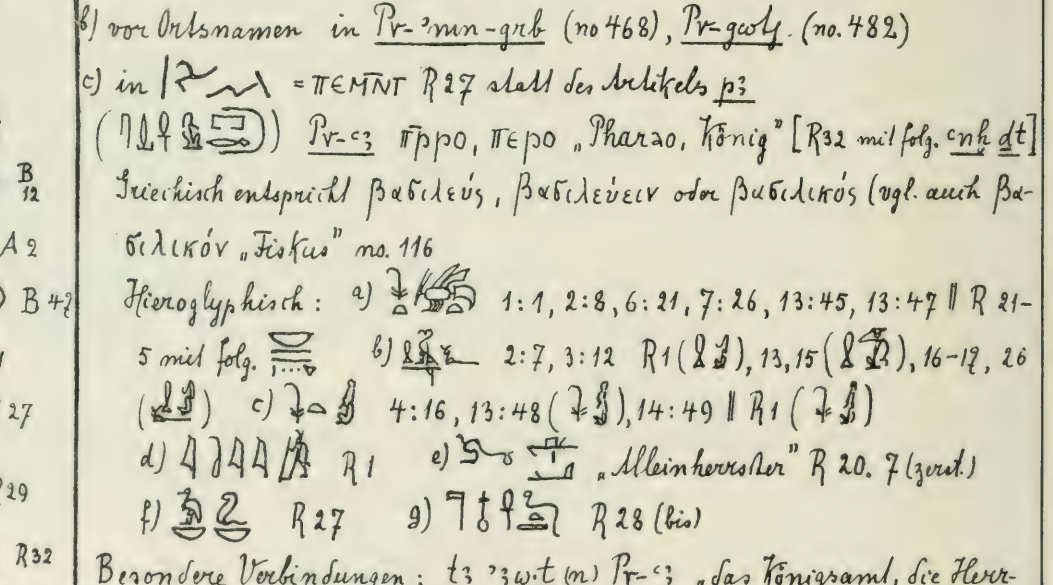 b) vor Ortsnamen in Pr-ꜣmn-grb (no 468), Pr-gwṱ. (no. 482)
c) in = ⲡⲉⲙⲛ̄ⲧ R 27 statt des Artikels pꜣ
Pr-ꜥꜣ ⲡⲣ̄ⲣⲟ, ⲡⲉⲣⲟ „Pharao, König" [R32 mit folg. ꜥnḫ ḏt]
B 12 Griechisch entspricht βασιλεύς, βασιλεύειν oder βασιλικός (vgl. auch βα-
A 2 σιλικόν „Fiskus" no. 116
B 42 Hieroglyphisch: a) 1:1, 2:8, 6:21, 7:26, 13:45, 13:47 || R 21-
5 mit folg. b) 2:7, 3:12 R1 ( ), 13, 15 ( ), 16-17, 26
27 ( ) c) 4:16, 13:48 ( ), 14:49 || R1 ( )
d) R 1 e) „Alleinherrscher" R 20. 7 (zerst.)
29
f) R 27 g) R 28 (bis)
R32 Besondere Verbindungen: tꜣ ꜣw.t (n) Pr-ꜥꜣ „das Königsamt, die Herr-